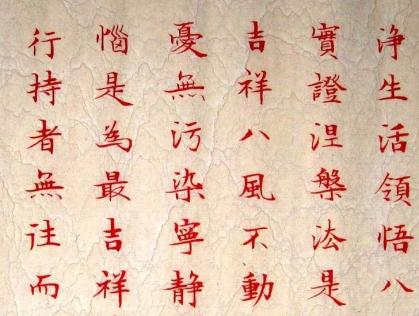 淨生活領悟八
實證涅槃法是
吉祥八風不動
憂無污染寧靜
惱是為最吉祥
行持者無往而